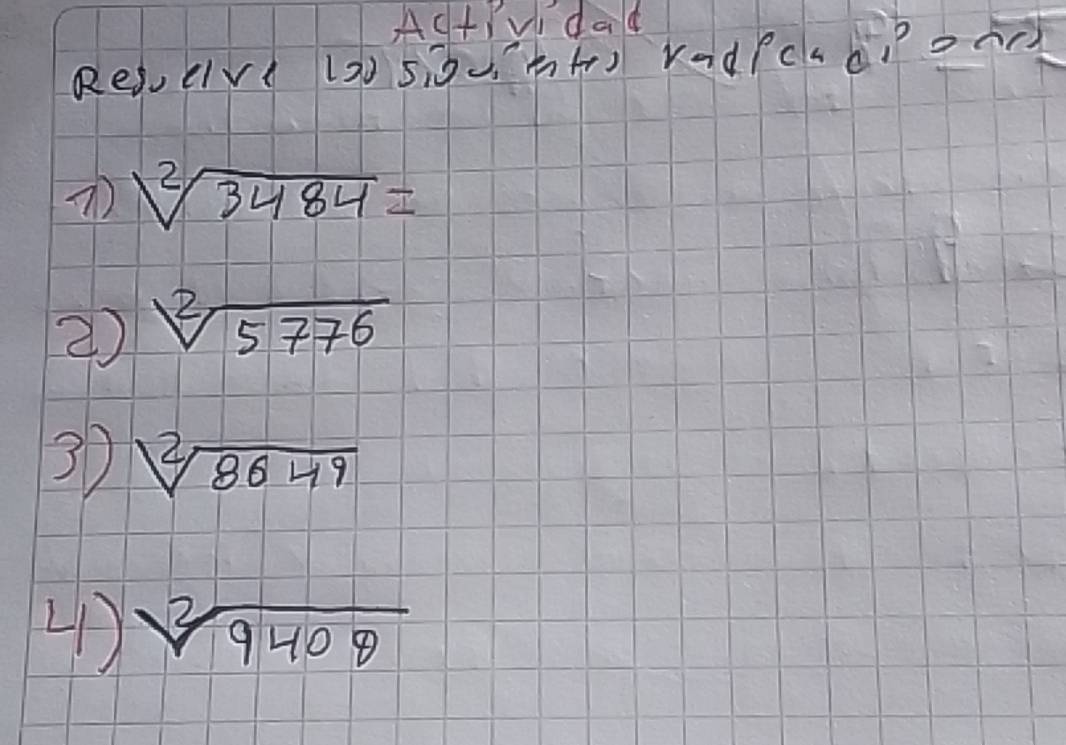 Actividad
Resuelve los siguientes radicaciones
1) ²√3484 =
2) ²√5776
3) ²√8649
4) ²√9408